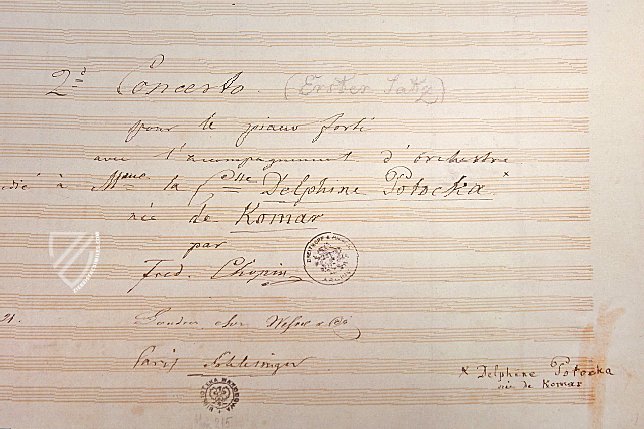 2d Concerto. (Erster Satz)
pour le piano forté
avec l'accompagnement d'orchestre
dié à Mme la Csse Delphine Potocka x
née de Komar
par
Fred. Chopin
21. Londres chez Wessel & Co
Paris Schlesinger
x Delphine Potocka
née de Komar